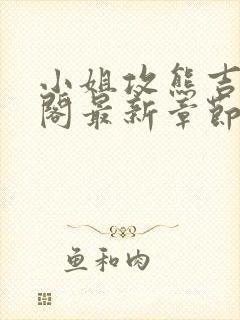 小姐攻熊吉
阁最新章節
鱼和肉